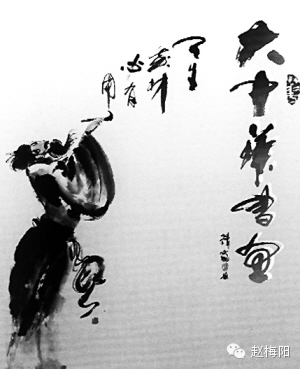 大中華書画
天生
我材
必有
用
赵梅阳